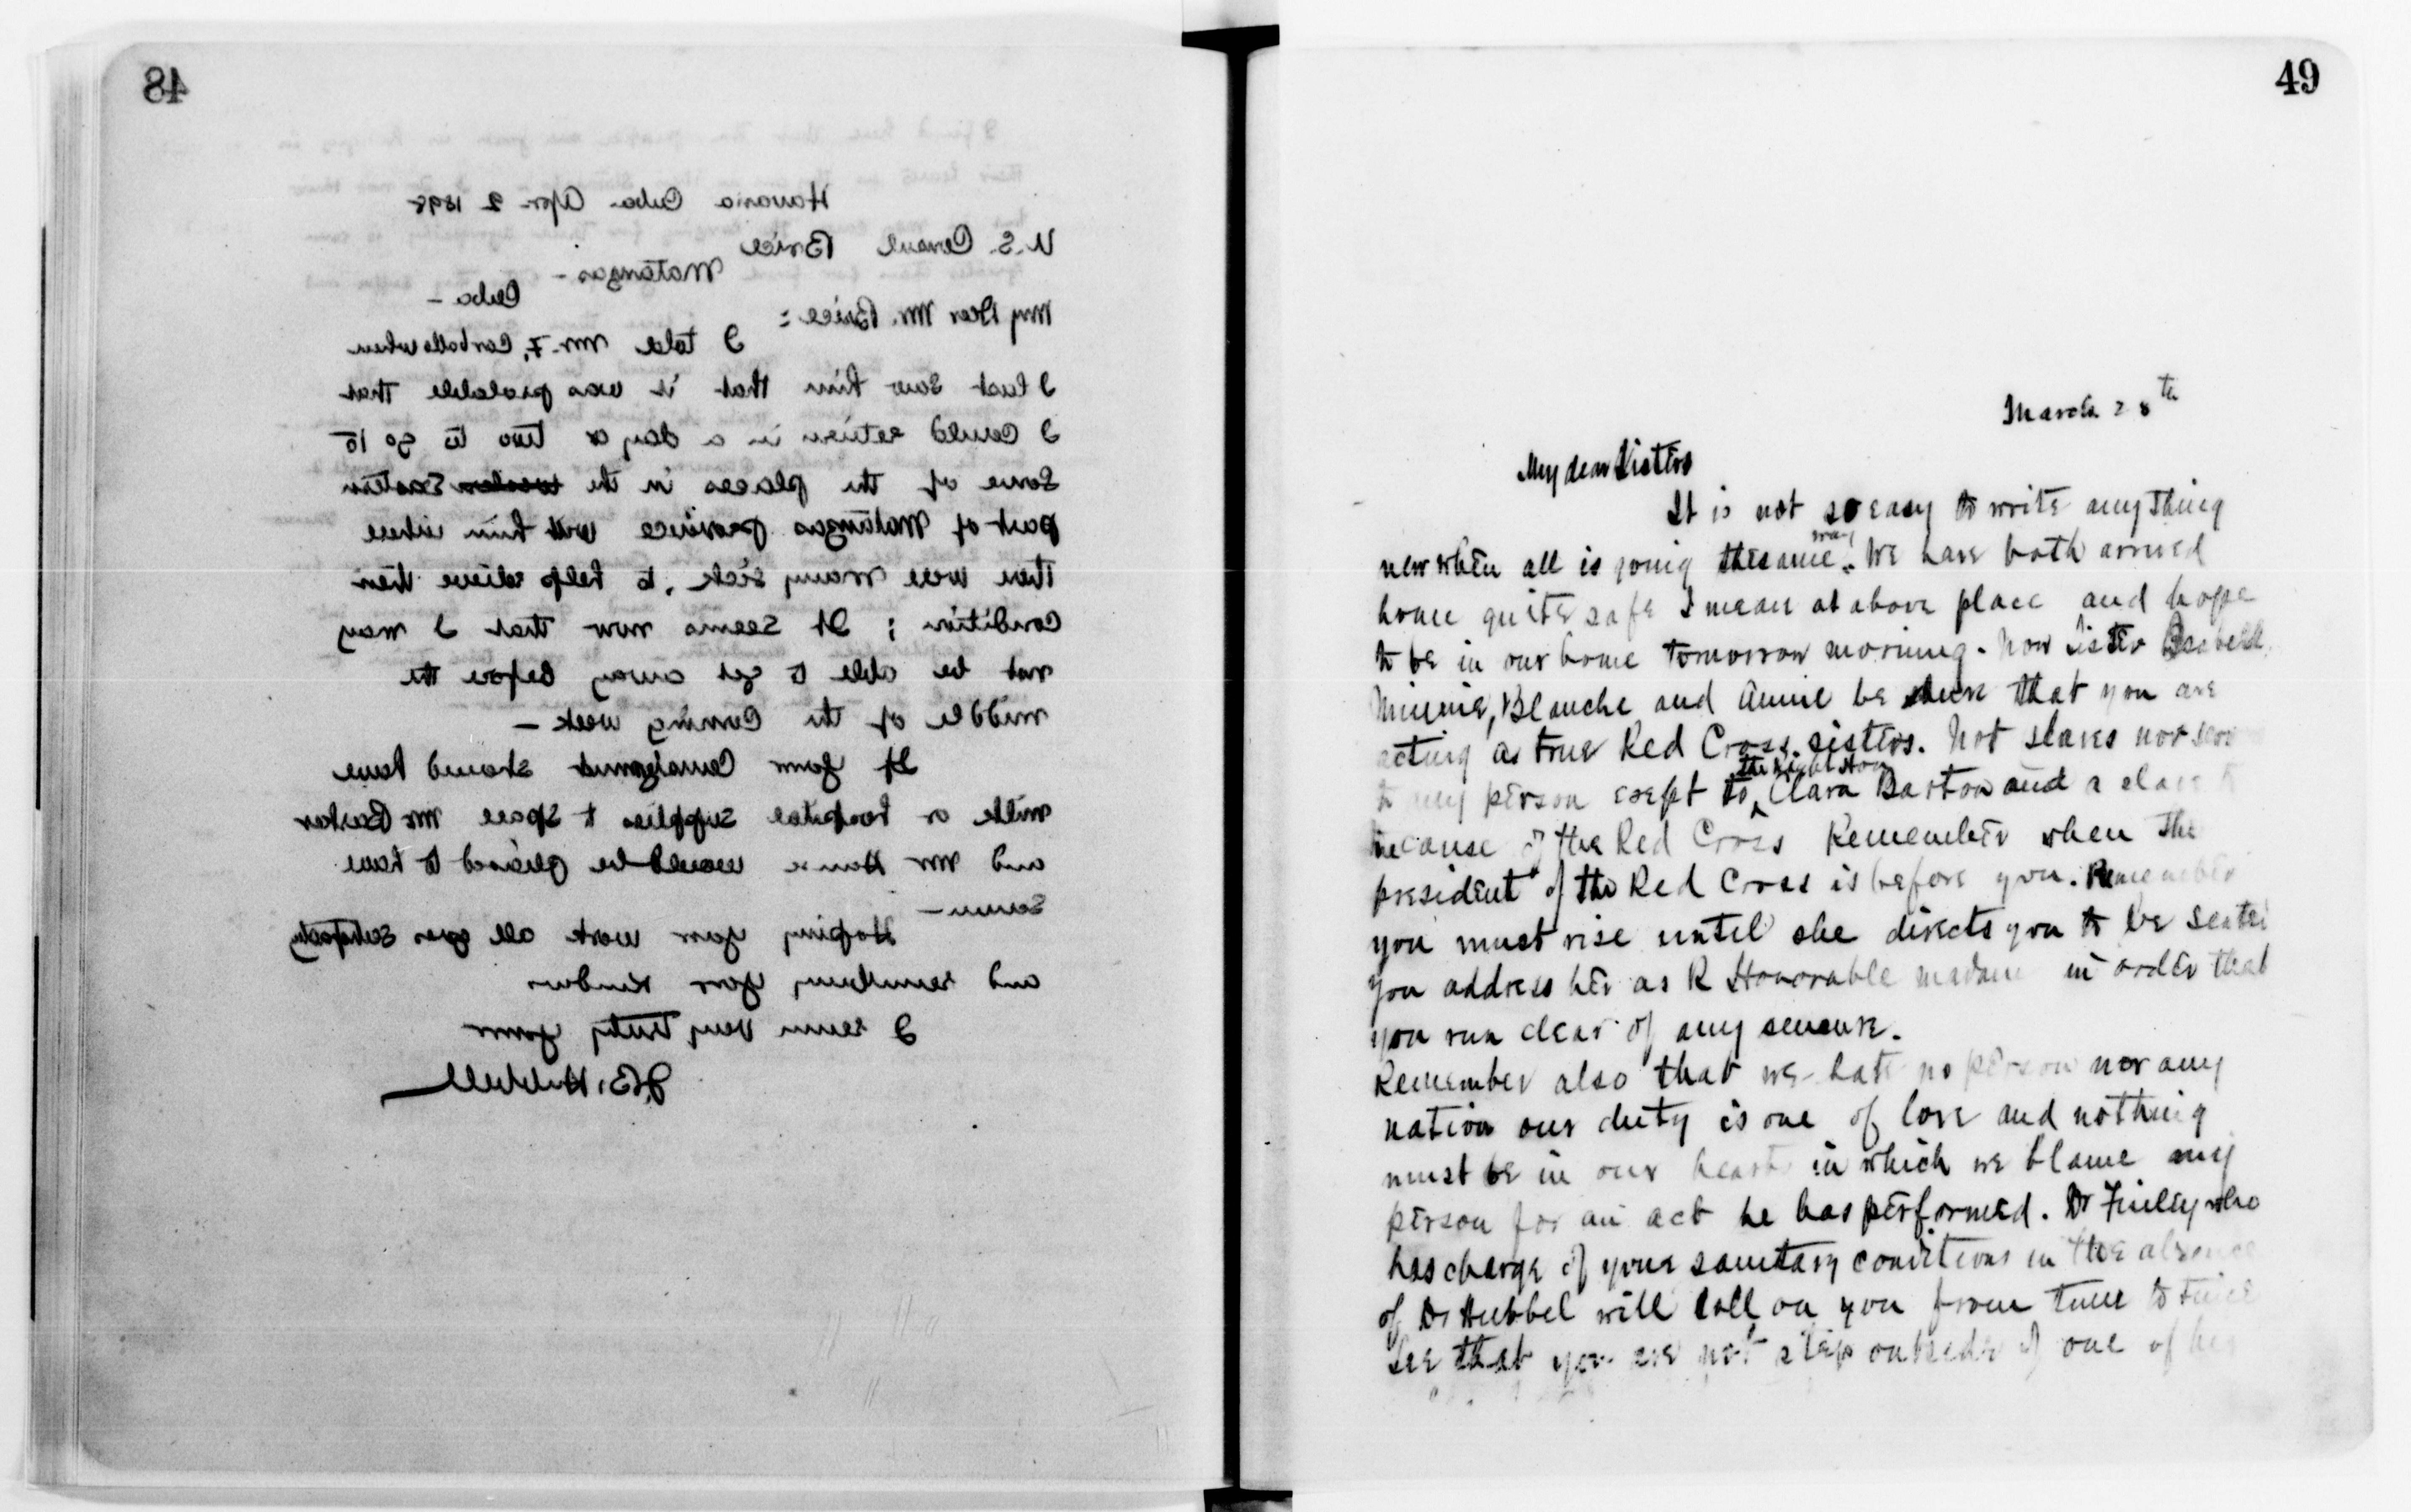 48
Havana Cuba Apr. 2 1898
U.S. Consul Brice
Matanzas -
Cuba -
My Dear Mr. Brice:
I told Mr. F. Carballo when
I last saw him that it was probable that
I could return in a day or two to go to
some of the places in the western Eastern
part of Matanzas province with him where
there were many sick, to help relieve their
condition; It seems now that I may
not be able to get away before the
middle of the coming week -
If your consignment should have
milk or hospital supplies to spare Mr Barker
and Mr would be pleased to have
same -
Hoping your work all goes
and your kindness
I very truly yours
J.B. Hubbell
49
March 28th
My dear Sisters
It is not so easy to write anything
new when all is going the same way. We have both arrived
home quite safe I mean at above place and hope
to be in our home tomorrow morning. Now Sister Isabell,
Minnie, Blanche and Annie be shure that you are
acting as true Red Cross sisters. Not slaves nor
to any person exept to the Right Hon Clara Barton and a slave
because of the Red Cross Remember when the
president of the Red Cross is before you. Remember
you must rise until she directs you to be seated
You address her as R Honorable madam in order that
you run clear of any sensure.
Remember also that we hate no person nor any
nation our duty is one of love and nothing
must be in our heart in which we blame any
person for an act he has performed. Dr Finley who
has charge of your sanitary conditions in the absence
of Dr Hubbel will call on you from time to time
See that you not step outside of one of his